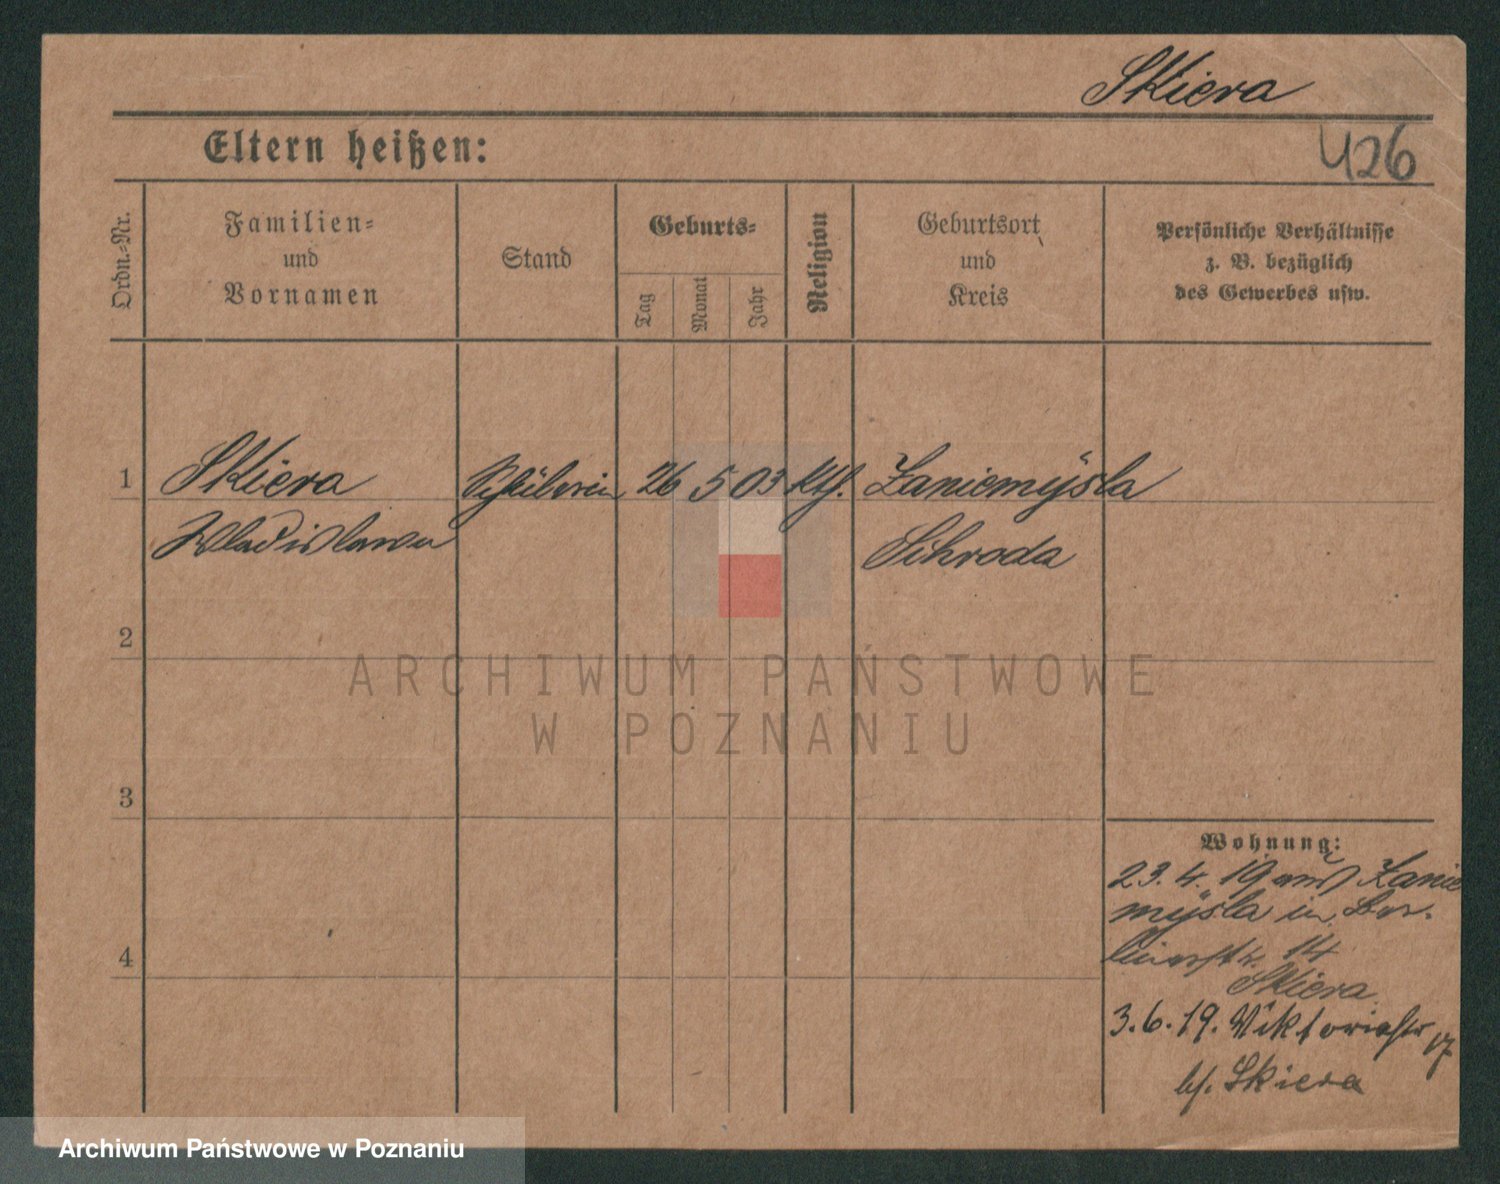 Skiera
Eltern heißen:
426
Ordn.-Nr.
Familien-
und
Vornamen
Stand
Geburts-
Tag
Monat
Jahr
Religion
Geburtsort
und
Kreis
Persönliche Verhältnisse
z. B. bezüglich
des Gewerbes usw.
1 Skiera Schülerin 26 5 03 Kth. Zaniemÿsla
Wladislawa Schroda
2
3
4
Wohnung:
23. 4. 19 aus Zanie
mÿsla in Ber-
linerstr. 14
Skiera
3. 6. 19. Viktoriastr 17
b/. Skiera
ARCHIWUM PAŃSTWOWE
W POZNANIU
Archiwum Państwowe w Poznaniu